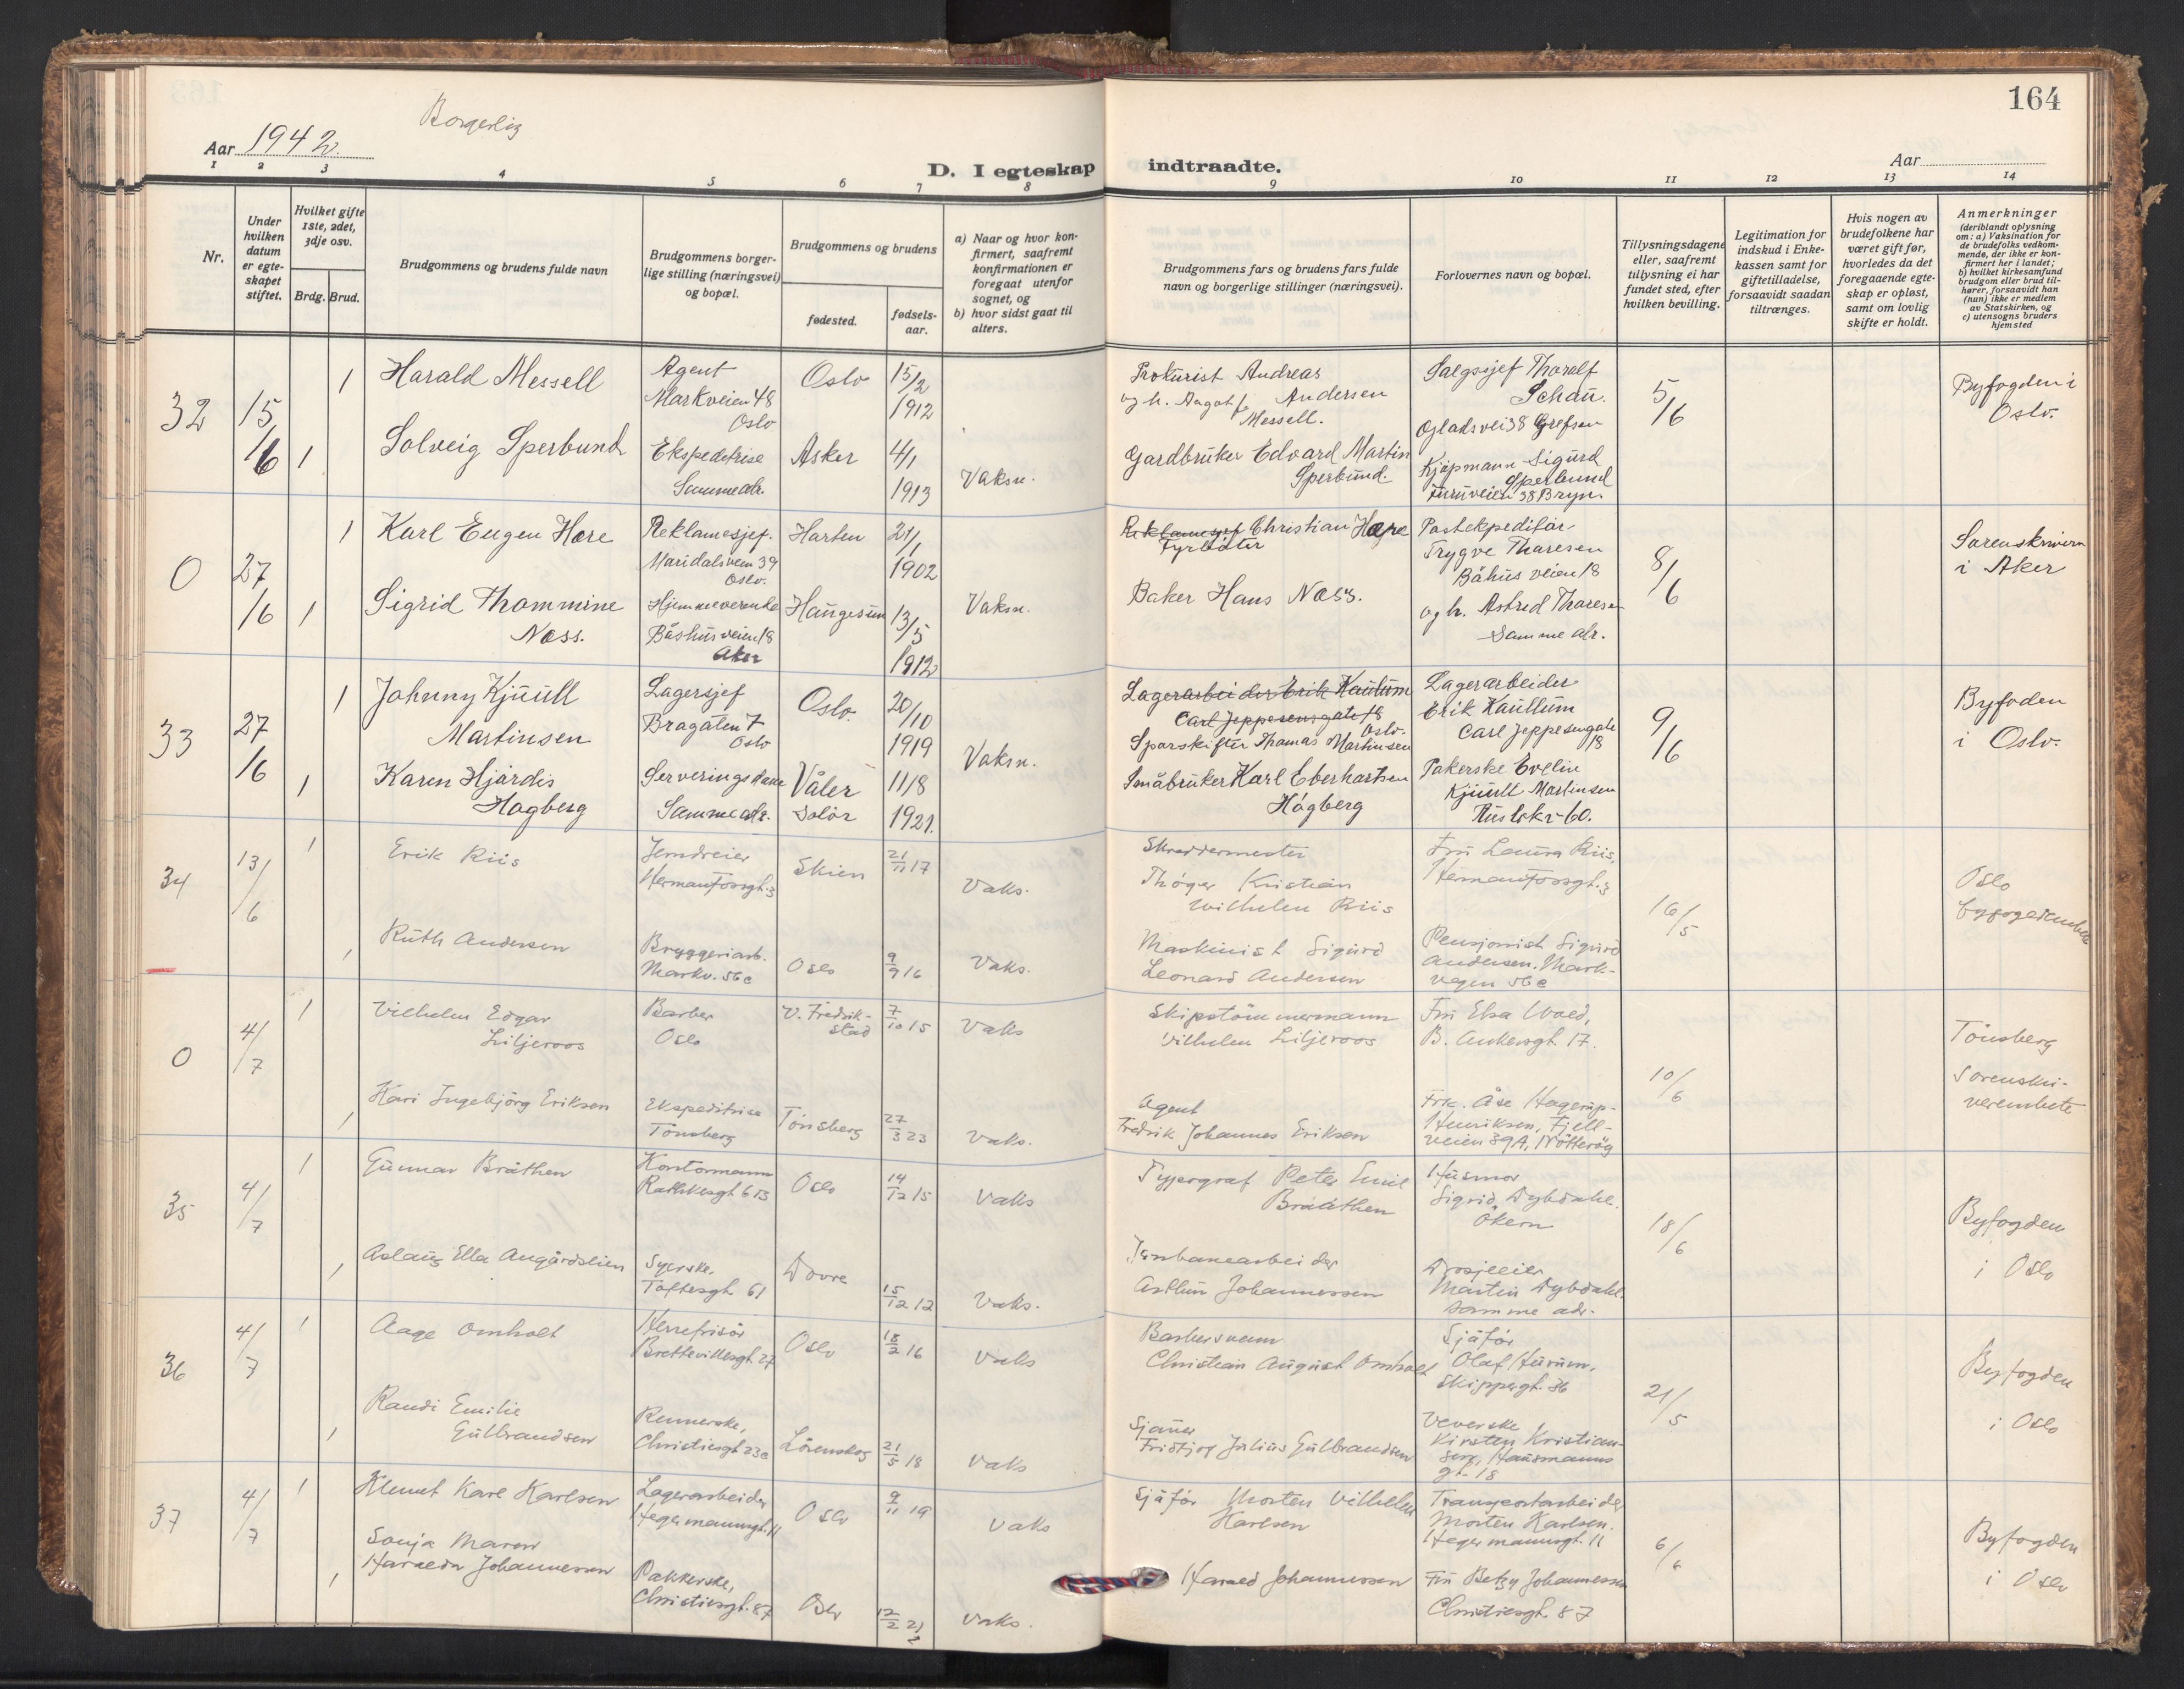 164
Borgerlig
Aar 1942.
D. I egteskap indtraadte.
Aar
1 2 3 4 5 6 7 8 9 10 11 12 13 14
Nr.
Under hvilken datum er egte-skapet stiftet.
Hvilket gifte 1ste, 2det, 3dje osv.
Brdg. Brud.
Brudgommens og brudens fulde navn
Brudgommens borger-lige stilling (næringsvei) og bopæl.
Brudgommens og brudens
fødested.
fødsels-aar.
a) Naar og hvor kon-firmert, saafremt konfirmationen er foregaat utenfor sognet, og
b) hvor sidst gaat til alters.
Brudgommens fars og brudens fars fulde navn og borgerlige stillinger (næringsvei).
Forlovernes navn og bopæl.
Tillysningsdagene eller, saafremt tillysning ei har fundet sted, efter hvilken bevilling.
Legitimation for indskud i Enke-kassen samt for giftetilladelse, forsaavidt saadan tiltrænges.
Hvis nogen av brudefolkene har været gift før, hvorledes da det foregaaende egte-skap er opløst, samt om lovlig skifte er holdt.
Anmerkninger
(deriblandt oplysning om: a) Vaksination for de brudefolks vedkom-mende, der ikke er kon-firmert her i landet;
b) hvilket kirkesamfund brudgom eller brud til-hører, forsaavidt han (hun) ikke er medlem av Statskirken, og
c) utensogns bruders hjemsted
32 15/6 1 Harald Messell
Agent Markveien 48 Oslo
Oslo 15/2 1912
Prokurist Andreas Andersen
og h. Aagot f. Messell.
Salgssjef Thoralf Schau.
Ogladsvei 38 Grefsen
5/6
Byfogden i Oslo.
1 Solveig Sperbund
Ekspeditrise Samme adr.
Asker 4/1 1913 Vaksn.
Gardbruker Edvard Martin Sperbund.
Kjøpmann Sigurd Sperbund
Furuveien 38 Bryn.
0 27/6 1 Karl Eugen Hare
Reklamesjef. Maridalsveien 39 Oslo.
Horten 21/1 1902
Reklamesjef Christian Hare
Fyrbøter
Postekspeditør Trygve Thoresen
Båhus veien 18
8/6
Sorenskriveren i Aker
1 Sigrid Thommine Næss.
Hjemmeværende Båshus veien 18 Aker
Haugesun 13/5 1912 Vaksn.
Baker Hans Næss.
og h. Astrid Thoresen
Samme adr.
33 27/6 1 Johnny Kjuull Martinsen
Lagersjef Bragaten 7 Oslo
Oslo. 20/10 1919
Lagerarbeider Erik Kaulum
Carl Jeppesensgate 18 Oslo.
Sporskifter Thomas Martinsen
Lagerarbeider Erik Kaullum
Carl Jeppesengate 18
9/6
Byfoden i Oslo.
1 Karen Hjørdis Hagberg
Serveringsdame Samme adr.
Våler Solør 11/8 1921. Vaksn.
Småbruker Karl Eberhartsen Högberg
Pakerske Evelin Kjuull Martinsen
60.
34 13/6 1 Erik Riis
Jerndreier Herman Fossgt. 3
Skien 21/11 17 Vaks.
Skreddermester Thöger Kristian Wilhelm Riis
Fru Laura Riis, Herman Fossgt. 3
16/5
Oslo byfogdembete
1 Ruth Andersen
Bryggeriarb. Markv. 56c
Oslo 9/9 16 Vaks.
Maskinist Sigurd Leonard Andersen
Pensjonist Sigurd Andersen. Mark-vegen 56c
0 4/7 1 Vilhelm Edgar Liljeroos
Barber Oslo
V. Fredrik-stad 7/10 15 Vaks
Skipstömmermann Vilhelm Liljeroos
Fru Elsa Wold, B. Ankersgt. 17.
10/6
Tönsberg sorenskri-verembete
1 Kari Ingebjörg Eriksen
Ekspeditrise Tönsberg
Tönsberg 27/3 23 Vaks.
Agent Fredrik Johannes Eriksen
Frk. Åse Hagerup-Henriksen, Fjell-veien 39A, Nötteröy
35 4/7 1 Gunnar Bråthen
Kontormann Rathkesgt. 6 B
Oslo 14/12 15 Vaks
Typograf Peter Emil Bråathen
Husmor Sigrid Dybdahl. Økern
18/6
Byfogden i Oslo
1 Aslaug Ella Angårdslien
Syerske. Toftesgt. 61
Dovre 15/12 12 Vaks.
Jernbanearbeider Arthur Johannessen
Drosjeeier Martin Dybdahl. Samme adr.
36 4/7 1 Aage Omholt
Herrefrisör Brettevillesgt. 27
Oslo 18/2 16 Vaks
Barbersvenn Christian August Omholt
Sjåför Olaf Hurum. Skippergt. 36
21/5
Byfogden i Oslo
1 Randi Emilie Gulbrandsen
Rennerske, Christiesgt. 23c
Lörenskog 21/5 18 Vaks
Sjauer Fridtjof Julius Gulbrandsen
Veverske Kirsten Kristian-sen, Hausmanns gt. 18
37 4/7 1 Klemet Karl Karlsen
Lagerarbeider Hegermannsgt. 11
Oslo 9/11 19 Vaks
Sjåför Morten Vilhelm Karlsen
Transportarbeider Morten Karlsen. Hegermannsgt. 11
6/6
Byfogden i Oslo
1 Sonja Maron Haralda Johannessen
Pakkerske, Christiesgt. 87
Oslo 12/2 21 Vaks.
Harald Johannessen
Fru Betzy Johannessen
Christiesgt. 87